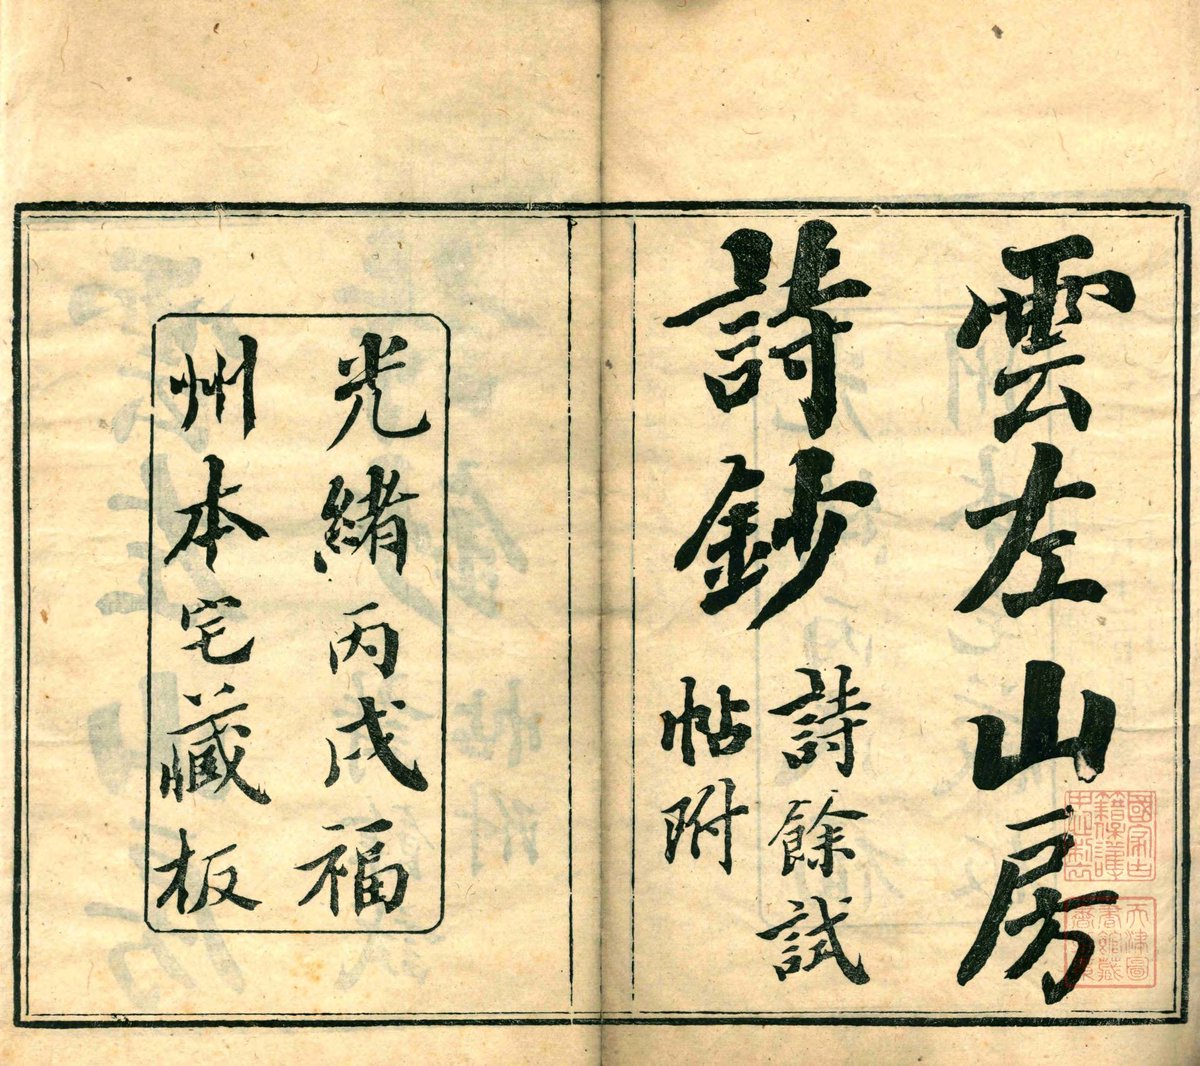 雲左山房
詩鈔
詩餘試
帖附
光緒丙戌福
州本宅藏板
國家古
籍保護
天津圖
書館藏